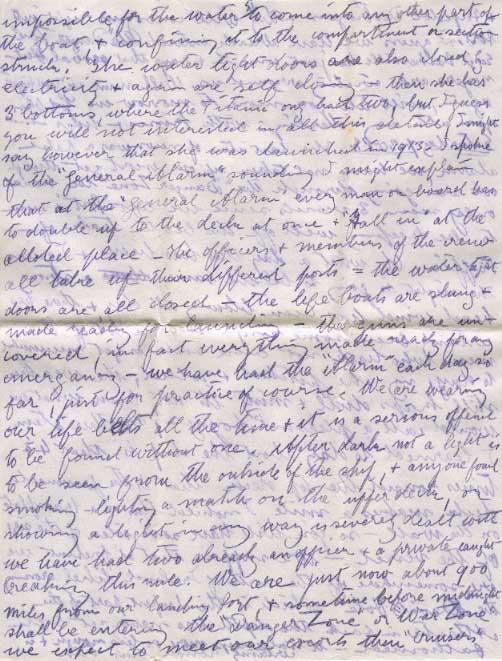 impossible for the water to come into any other part of
the boat & confining it to the compartment or section
struck. The water tight doors are also closed by
electricity & again are self closing - then she has
3 bottoms where the Titanic only had two, but I guess
you will not interested in all this detail, I might
say however that she was launched in 1915. I spoke
of the "General Alarm" sounding I might explain
that at the "General Alarm" every man on board has
to double up to the deck at once & "Fall in" at the
alloted place - The officers & members of the crew
all take up their different posts = the water tight
doors are all closed - the life boats are slung &
made ready for launching - the guns are un
covered, in fact everything made ready for any
emergancy - we have had the "Alarm" each day so
far, just for practice of course. We are wearing
our life belts all the time & it is a serious offence
to be found without one. After dark not a light is
to be seen from the outside of the ship, & anyone found
smoking lighting a match on the upper deck, or
showing a light in any way is severely dealt with
we have had two already an officer & a private caught
breaking this rule. We are just now about 900
miles from our landing port, & sometime before midnight
shall be entering the "Danger Zone" or War Zone"
we expect to meet our escorts then "Cruisers"